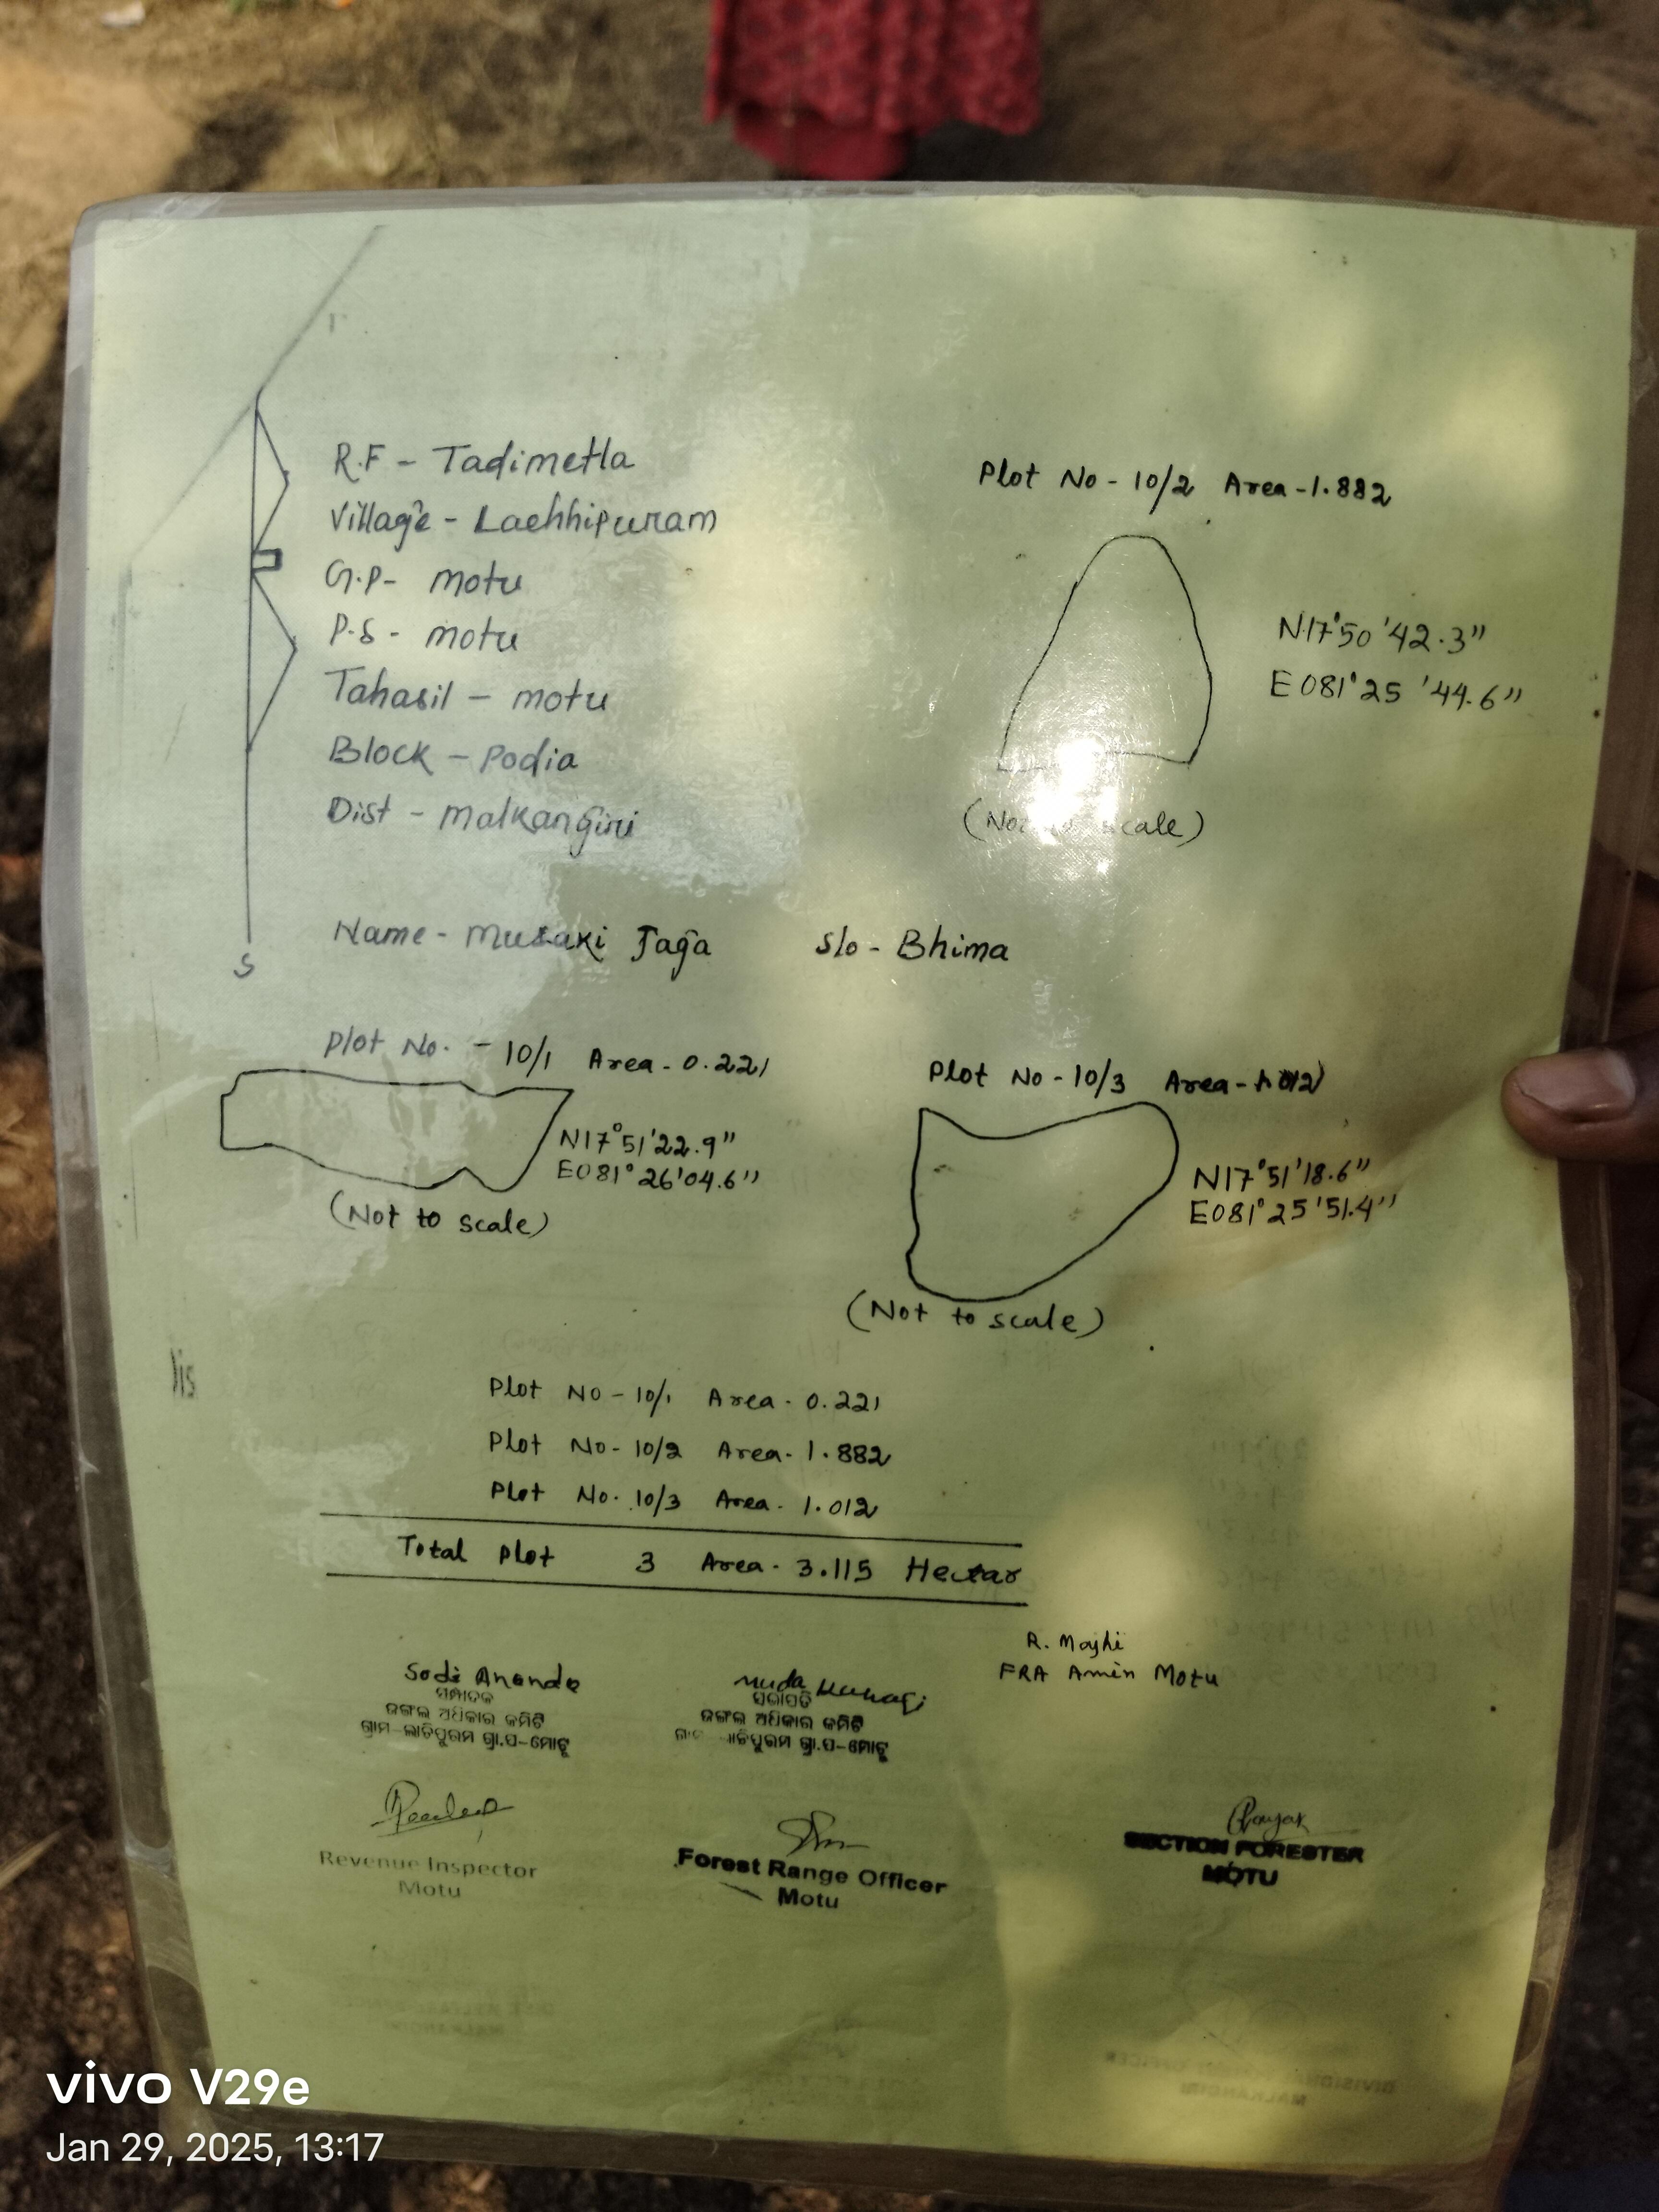 R.F - Tadimetla
Village - Lachhipuram
G.P- motu
P.S - motu
Tahasil - motu
Block - Podia
Dist - Malkangiri
Plot No - 10/2 Area -1.882
N17°50'42.3"
E081°25'44.6"
(Not to scale)
S
Name - Musaki Jaga S/o - Bhima
Plot No. - 10/1 Area - 0.221
N17°51'22.9"
E081°26'04.6"
(Not to scale)
Plot No - 10/3 Area - 1.012
N17°51'18.6"
E081°25'51.4"
(Not to scale)
Plot No - 10/1 Area - 0.221
Plot No - 10/2 Area - 1.882
Plot No. 10/3 Area - 1.012
Total Plot 3 Area - 3.115 Hectar
R. Majhi
FRA Amin Motu
Sodi Ananda
ସମ୍ପାଦକ
ଜଙ୍ଗଲ ଅଧିକାର କମିଟି
ଗ୍ରାମ-ଲାଚିପୁରମ ଗ୍ରା.ପ-ମୋଟୁ
muda
ସଭାପତି
ଜଙ୍ଗଲ ଅଧିକାର କମିଟି
ଗ୍ରା.ପ-ମୋଟୁ
Revenue Inspector
Motu
Forest Range Officer
Motu
SECTION FORESTER
MOTU
DIVISIONAL FOREST OFFICER
MALKANGIRI
vivo V29e
Jan 29, 2025, 13:17